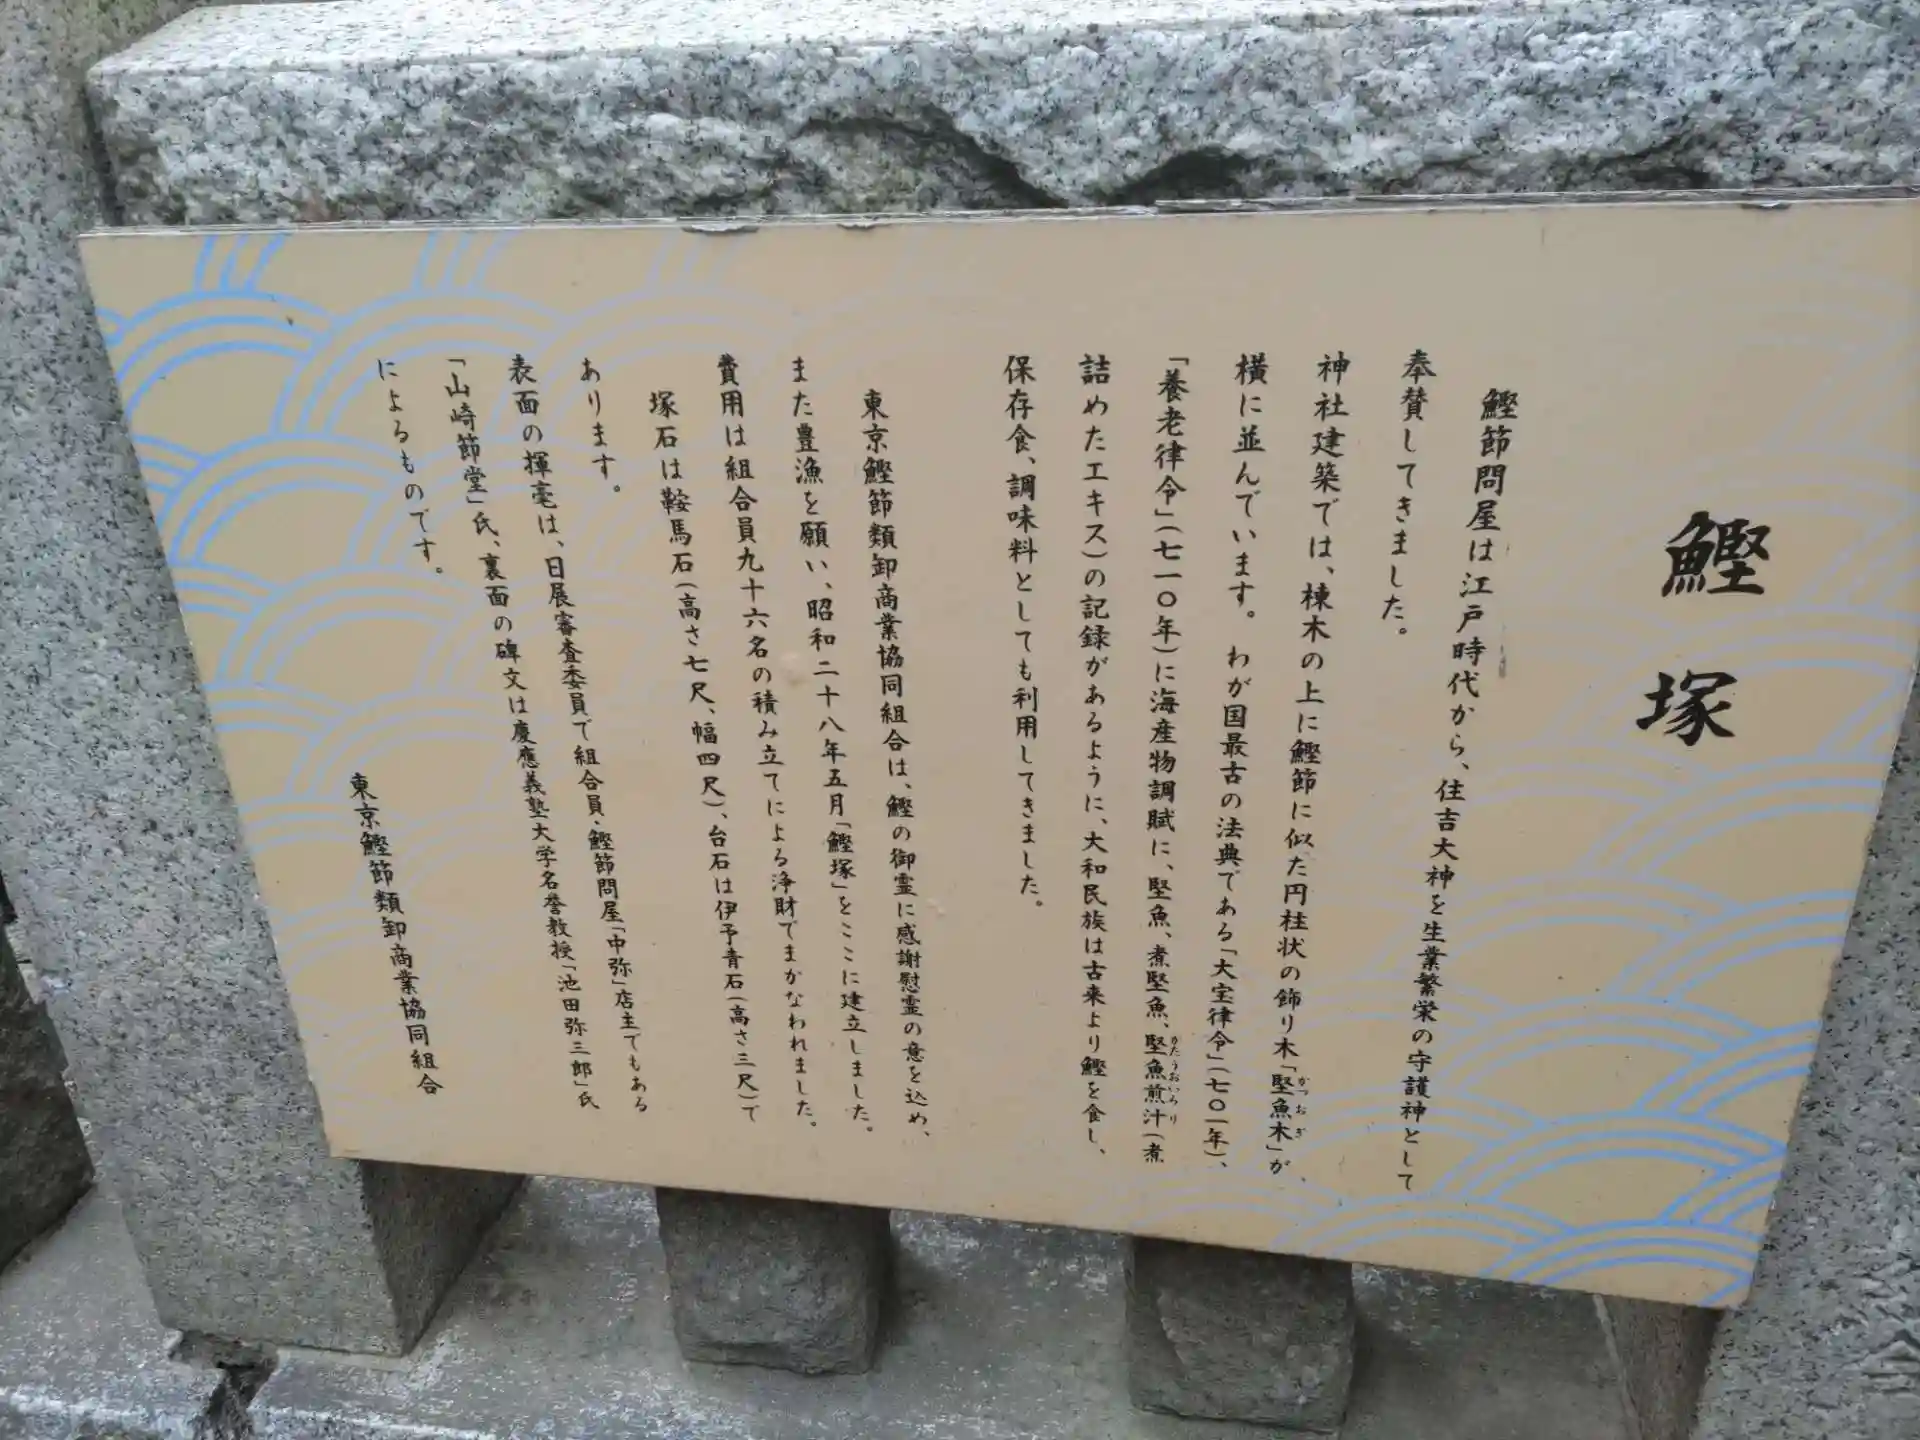 鰹塚
鰹節問屋は江戸時代から、住吉大神を生業繁栄の守護神として
奉賛してきました。
神社建築では、棟木の上に鰹節に似た円柱状の飾り木「堅魚木」が、
かつおぎ
横に並んでいます。わが国最古の法典である「大宝律令」(七〇一年)、
「養老律令」(七一〇年)に海産物調賦に、堅魚、煮堅魚、堅魚煎汁(煮
かたうおいろり
詰めたエキス)の記録があるように、大和民族は古来より鰹を食し、
保存食、調味料としても利用してきました。
東京鰹節類卸商業協同組合は、鰹の御霊に感謝慰霊の意を込め、
また豊漁を願い、昭和二十八年五月「鰹塚」をここに建立しました。
費用は組合員九十六名の積み立てによる浄財でまかなわれました。
塚石は鞍馬石(高さ七尺、幅四尺)、台石は伊予青石(高さ三尺)で
あります。
表面の揮毫は、日展審査委員で組合員・鰹節問屋「中弥」店主でもある
「山崎節堂」氏、裏面の碑文は慶應義塾大学名誉教授「池田弥三郎」氏
によるものです。
東京鰹節類卸商業協同組合